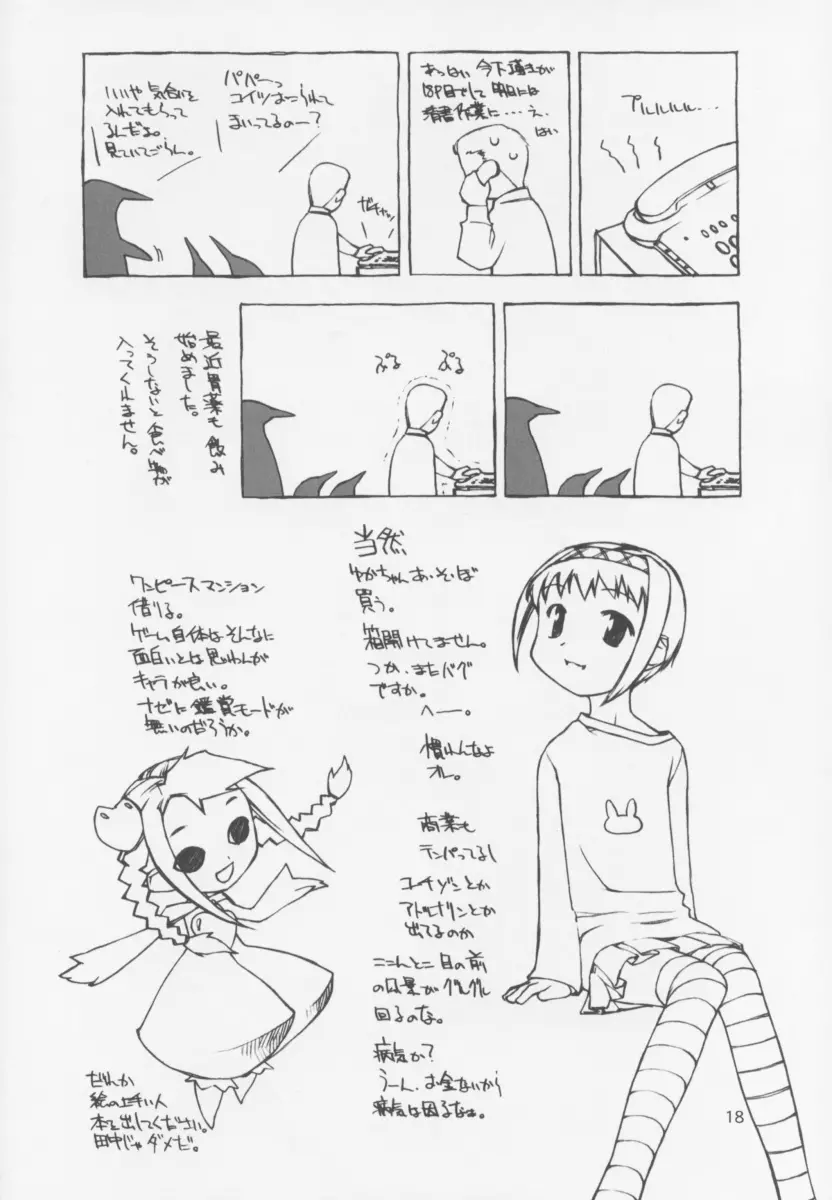 プルルルル・・・
あっはい 今下描きが
明日には
清書作業に・・・え、
はい
ガチャッ
パパーっ
コイツはこられて
まいってるのー？
いいや気合いを
入れてもらって
るんだよ。
見ていてごらん。
ぷる
ぷる
最近胃薬も飲み
始めました。
そうしないと食べ物が
入ってくれません。
当然
ゆかちゃんあ・そ・ぼ
買う。
箱開けてません。
つか、またバグ
ですか。
へー。
慣れんなよ
オレ。
商業も
テンパってるし
コーチゾンとか
アドレナリンとか
出てるのか
ここんとこ目の前
の風景がグルグル
回るのな。
病気か？
うーん、お金ないから
病気は困るなぁ。
ワンピースマンション
借りる。
ゲーム自体はそんなに
面白いとは思わんが
キャラが良い。
ナゼに鑑賞モードが
無いのだろうか。
だれか
絵の上手い人
本を出してください。
田中じゃダメだ。
18